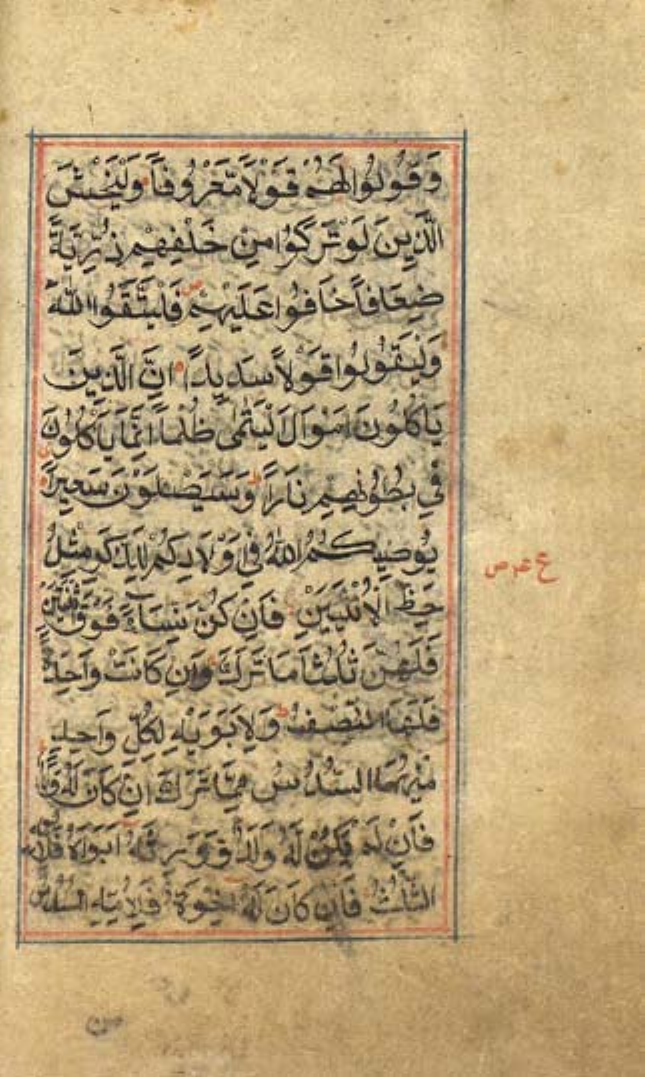 وَقُولُوا لَهُمْ قَوْلًا مَّعْرُوفًا وَلْيَخْشَ
الَّذِينَ لَوْ تَرَكُوا مِنْ خَلْفِهِمْ ذُرِّيَّةً
ضِعَافًا خَافُوا عَلَيْهِمْ فَلْيَتَّقُوا اللَّهَ
وَلْيَقُولُوا قَوْلًا سَدِيدًا إِنَّ الَّذِينَ
يَأْكُلُونَ أَمْوَالَ الْيَتَٰمَىٰ ظُلْمًا إِنَّمَا يَأْكُلُونَ
فِي بُطُونِهِمْ نَارًا وَسَيَصْلَوْنَ سَعِيرًا
يُوصِيكُمُ اللَّهُ فِي أَوْلَادِكُمْ لِلذَّكَرِ مِثْلُ
حَظِّ الْأُنثَيَيْنِ فَإِن كُنَّ نِسَاءً فَوْقَ اثْنَتَيْنِ
فَلَهُنَّ ثُلُثَا مَا تَرَكَ وَإِن كَانَتْ وَاحِدَةً
فَلَهَا النِّصْفُ وَلِأَبَوَيْهِ لِكُلِّ وَاحِدٍ
مِّنْهُمَا السُّدُسُ مِمَّا تَرَكَ إِن كَانَ لَهُ وَلَدٌ
فَإِن لَّمْ يَكُن لَّهُ وَلَدٌ وَوَرِثَهُ أَبَوَاهُ فَلِأُمِّهِ
الثُّلُثُ فَإِن كَانَ لَهُ إِخْوَةٌ فَلِأُمِّهِ السُّدُسُ